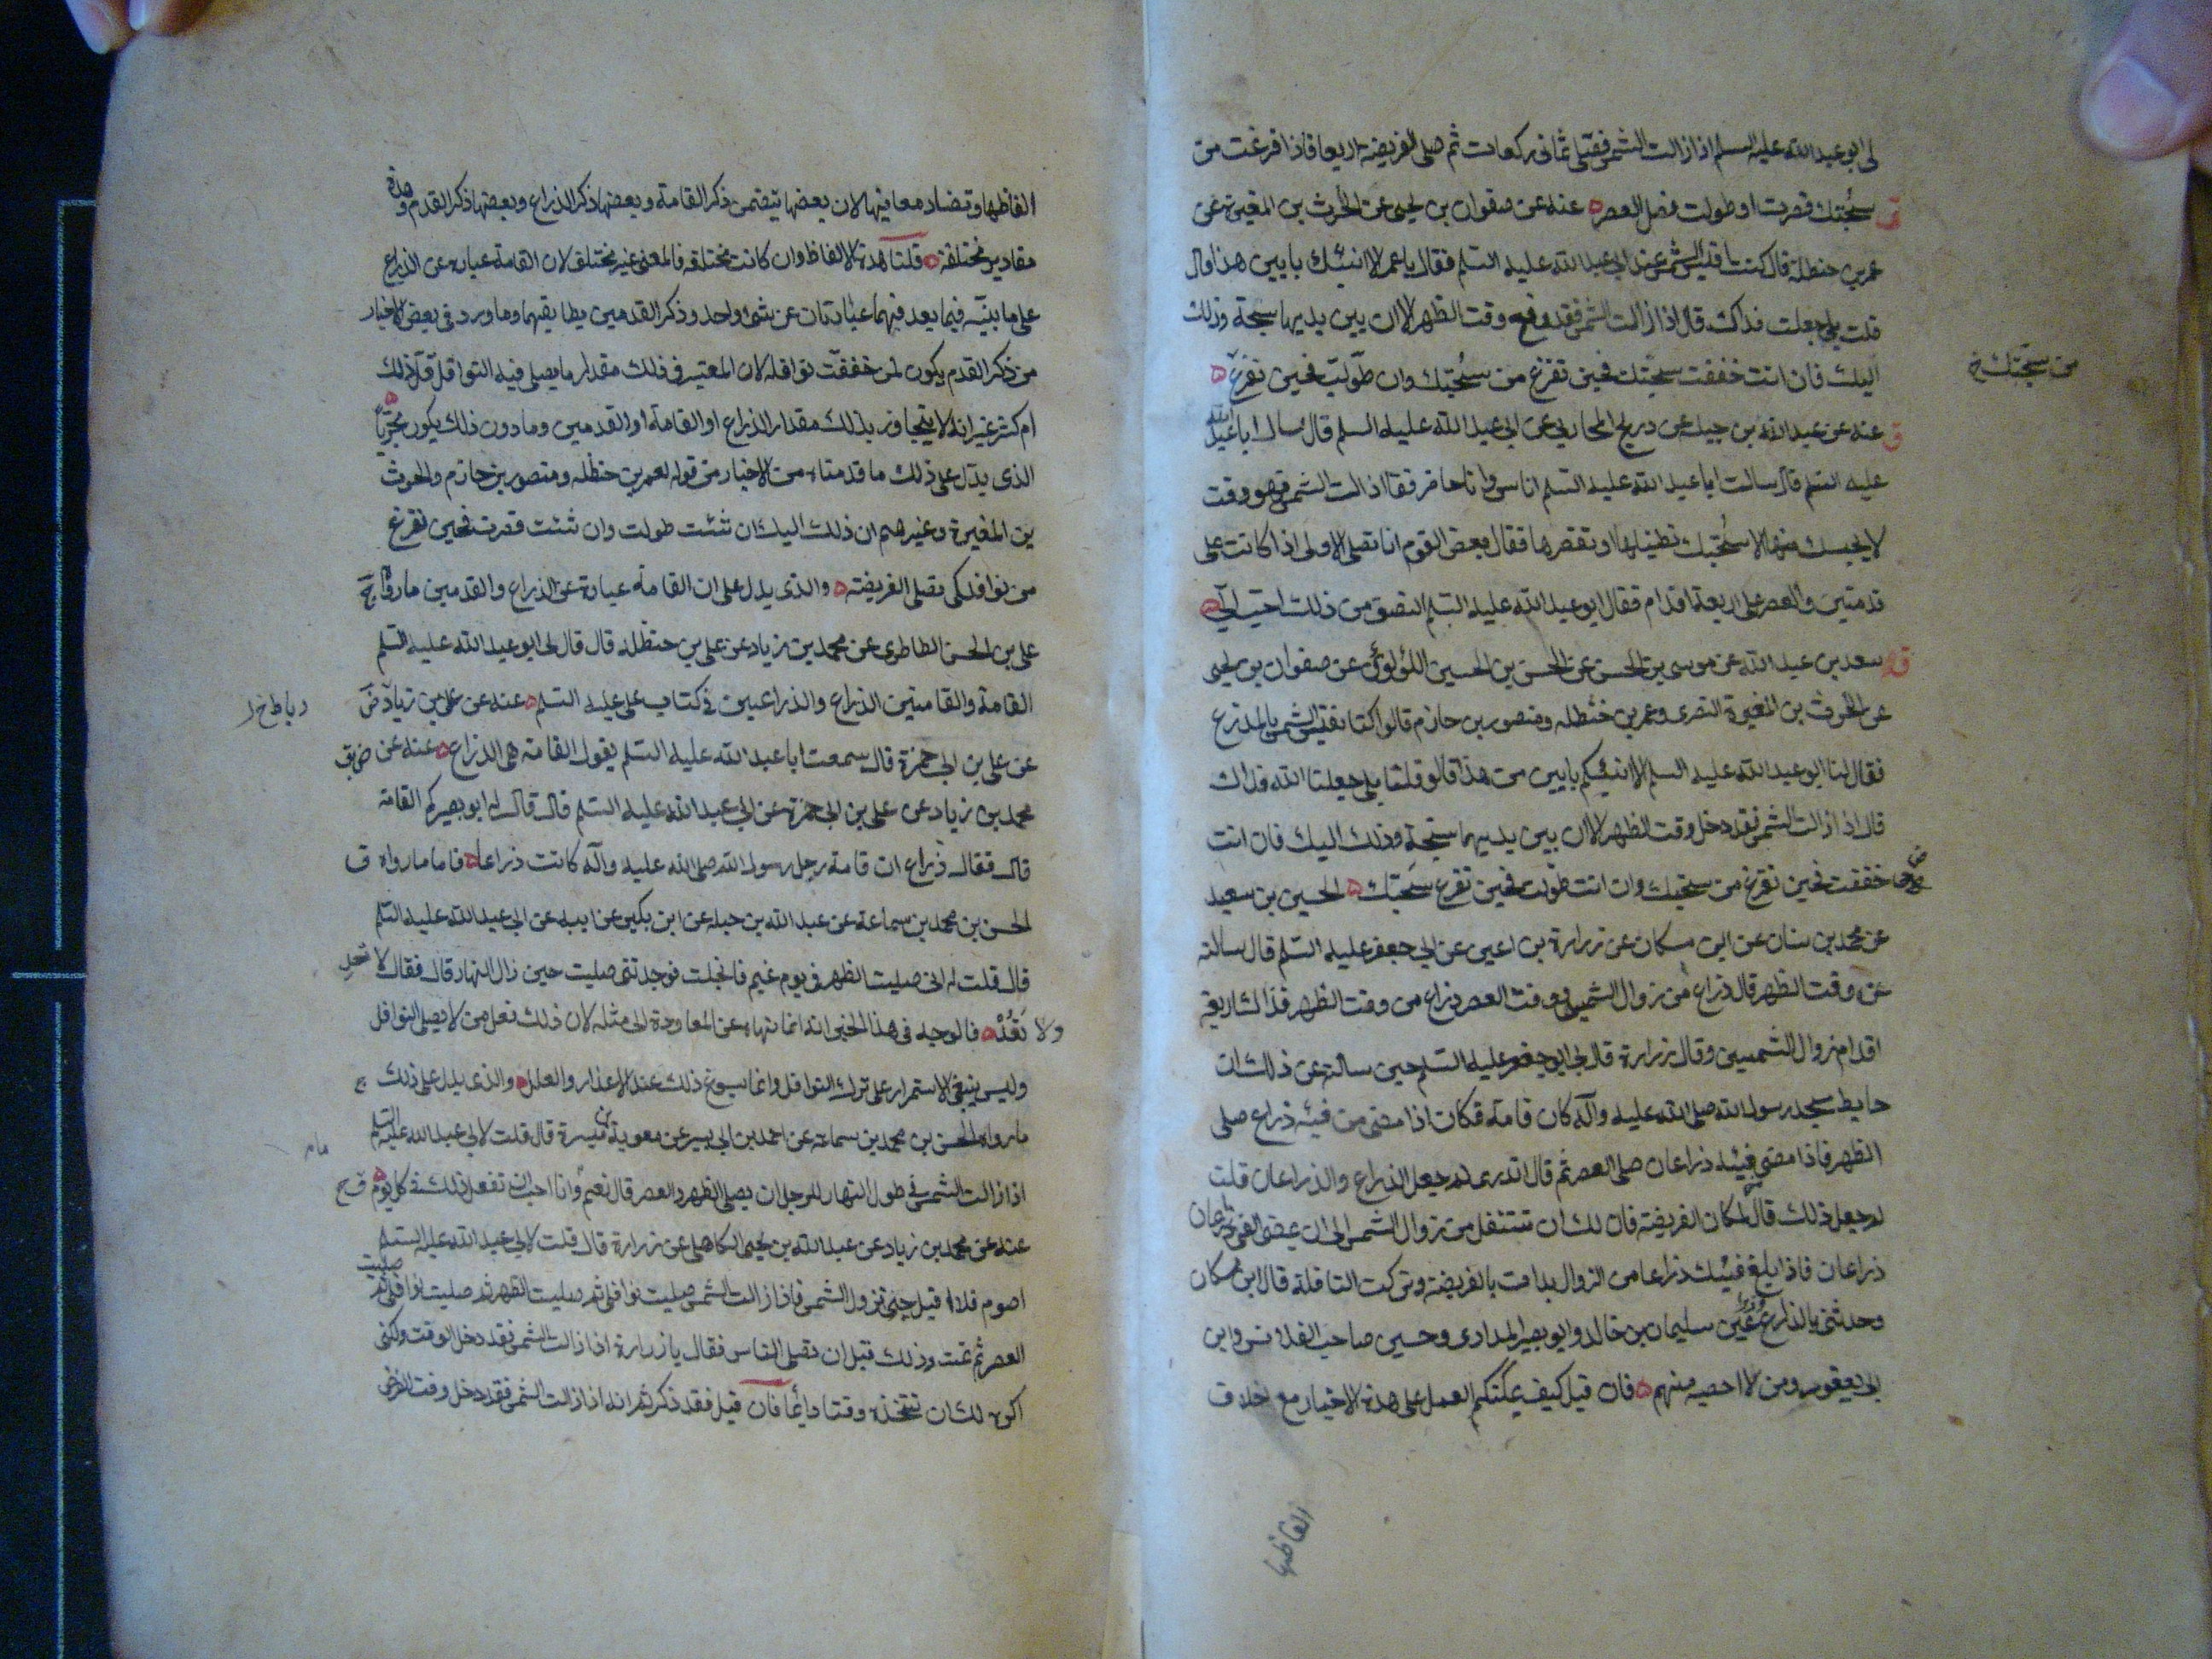 لى ابو عبد الله عليه السلم اذا زالت الشمس فصل ثمانى ركعات ثم صلى الفريضة اربعا فاذا فرغت من
سبحتك قصرت او طولت فصل العصر عنه عن صفوان بن يحيى عن الحرث بن المغيرة عن
عمر بن حنظلة قال كنت اقيس الشمس عند ابى عبد الله عليه السلم فقال يا عمر الا انبئك بابين من هذا قال
قلت بلى جعلت فداك قال اذا زالت الشمس فقد وقع وقت الظهر الا ان بين يديها سبحة وذلك
اليك فان انت خففت سبحتك فحين تفرغ من سبحتك وان طولت فحين تفرغ
من سبحتك خ
عنه عن عبد الله بن جبلة عن ذريح المحاربى عن ابى عبد الله عليه السلم قال سال ابا عبد الله
عليه السلم قال سالت ابا عبد الله عليه السلم اناس وانا حاضر فقا اذا زالت الشمس فهو وقت
لا يحبسك منها الا سبحتك تطيلها او تقصرها فقال بعض القوم انا نصلى الاولى اذا كانت على
قدمين والعصر على اربعة اقدام فقال ابو عبد الله عليه السلم النصف من ذلك احب الى
سعد بن عبد الله عن موسى بن الحسن عن الحسن بن الحسين اللؤلوئى عن صفوان بن يحيى
عن الحرث بن المغيرة النصرى وعمر بن حنظله ومنصور بن حازم قالوا كنا نقيس الشمس بالمدينة بالذراع
فقال لنا ابو عبد الله عليه السلم الا انبئكم بابين من هذا قالوا قلنا بلى جعلنا الله فداك
قال اذا زالت الشمس فقد دخل وقت الظهر الا ان بين يديهما سبحة وذلك اليك فان انت
خففت فحين تفرغ من سبحتك وان انت طولت فحين تفرغ سبحتك الحسين بن سعيد
عن محمد بن سنان عن ابن مسكان عن زرارة بن اعين عن ابى جعفر عليه السلم قال سالته
عن وقت الظهر قال ذراع من زوال الشمس ووقت العصر ذراع من وقت الظهر فذلك اربعة
اقدام من زوال الشمس وقال زرارة قال لى ابو جعفر عليه السلم حين سالته عن ذلك ان
حايط مسجد رسول الله صلى الله عليه وآله كان قامة فكان اذا مضى من فيئه ذراع صلى
الظهر فاذا مضى فيئه ذراعان صلى العصر ثم قال اتدرى لم جعل الذراع والذراعان قلت
لم جعل ذلك قال لمكان الفريضة فان لك ان تتنفل من زوال الشمس الى ان يمضى الفئ ذراعان
ذراعان فاذا بلغ فيئك ذراعا من الزوال بدات بالفريضة وتركت النافلة قال ابن مسكان
وحدثنى بالذراع والذراعين سليمان بن خالد وابو بصير المرادى وحسين صاحب القلانس وابن
ابى يعفور ومن لا احصيه منهم فان قيل كيف يمكنكم العمل على هذه الاخبار مع اختلاف
الفاظها
الفاظها وتضاد معانيها لان بعضها يتضمن ذكر القامة وبعضها ذكر الذراع وبعضها ذكر القدم وهذه
مقادير مختلفة قلنا هذه الالفاظ وان كانت مختلفه فالمعنى غير مختلف لان القامة عبارة عن الذراع
على ما نبينه فيما بعد فهما عبارتان عن شئ واحد وذكر القدمين يطابقهما وما ورد فى بعض الاخبار
من ذكر القدم يكون لمن خففت نوافله لان المعتبر فى ذلك مقدار ما يصلى فيه النوافل قل ذلك
ام كثر غير انه لا يتجاوز بذلك مقدار الذراع او القامة او القدمين وما دون ذلك يكون مجزيا
الذى يدل على ذلك ما قدمناه من الاخبار من قوله لعمر بن حنظله ومنصور بن حازم والحرث
بن المغيرة وغيرهم ان ذلك اليك ان شئت طولت وان شئت قصرت فحين تفرغ
من نوافلك تصلى الفريضة والذى يدل على ان القامة عبارة عن الذراع والقدمين ما رواه
على بن الحسن الطاطرى عن محمد بن زياد عن على بن حنظله قال قال لى ابو عبد الله عليه السلم
القامة والقامتين الذراع والذراعين فى كتاب على عليه السلم عنه عن على بن زياد
عن على بن ابى حمزة قال سمعت ابا عبد الله عليه السلم يقول القامة هى الذراع عنه عن
محمد بن زياد عن على بن ابى حمزة عن ابى عبد الله عليه السلم قال قال له ابو بصير كم القامة
قال فقال ذراع ان قامة رجل رسول الله صلى الله عليه وآله كانت ذراعا فاما ما رواه
الحسن بن محمد بن سماعة عن عبد الله بن جبله عن ابن بكير عن ابيه عن ابى عبد الله عليه السلم
قال قلت له انى صليت الظهر فى يوم غيم فانجلت فوجدتنى صليت حين زال النهار قال فقال لا تعد
ولا تعد فالوجه فى هذا الخبر انه انما نهاه عن المعاودة الى مثله لان ذلك فعل من لا يصلى النوافل
وليس ينبغى الاستمرار على ترك النوافل وانما يسوغ ذلك عند الاعذار والعلل والذى يدل على ذلك
ما رواه الحسن بن محمد بن سماعة عن احمد بن ابى بشير عن معوية بن ميسرة قال قلت لابى عبد الله عليه السلم
اذا زالت الشمس فى طول النهار للرجل ان يصلى الظهر والعصر قال نعم وانا احب ان تفعل ذلك فى كل يوم
عنه عن محمد بن زياد عن عبد الله بن يحيى الكاهلى عن زرارة قال قلت لابى عبد الله عليه السلم
اصوم فلا اقيل حتى تزول الشمس فاذا زالت الشمس صليت نوافلى ثم صليت الظهر ثم صليت نوافلى ثم صليت
العصر ثم نمت وذلك قبل ان يصلى الناس فقال يا زرارة اذا زالت الشمس فقد دخل الوقت ولكنى
اكره لك ان تتخذه وقتا دائما فان قيل فقد ذكرتم انه اذا زالت الشمس فقد دخل وقت الفرض